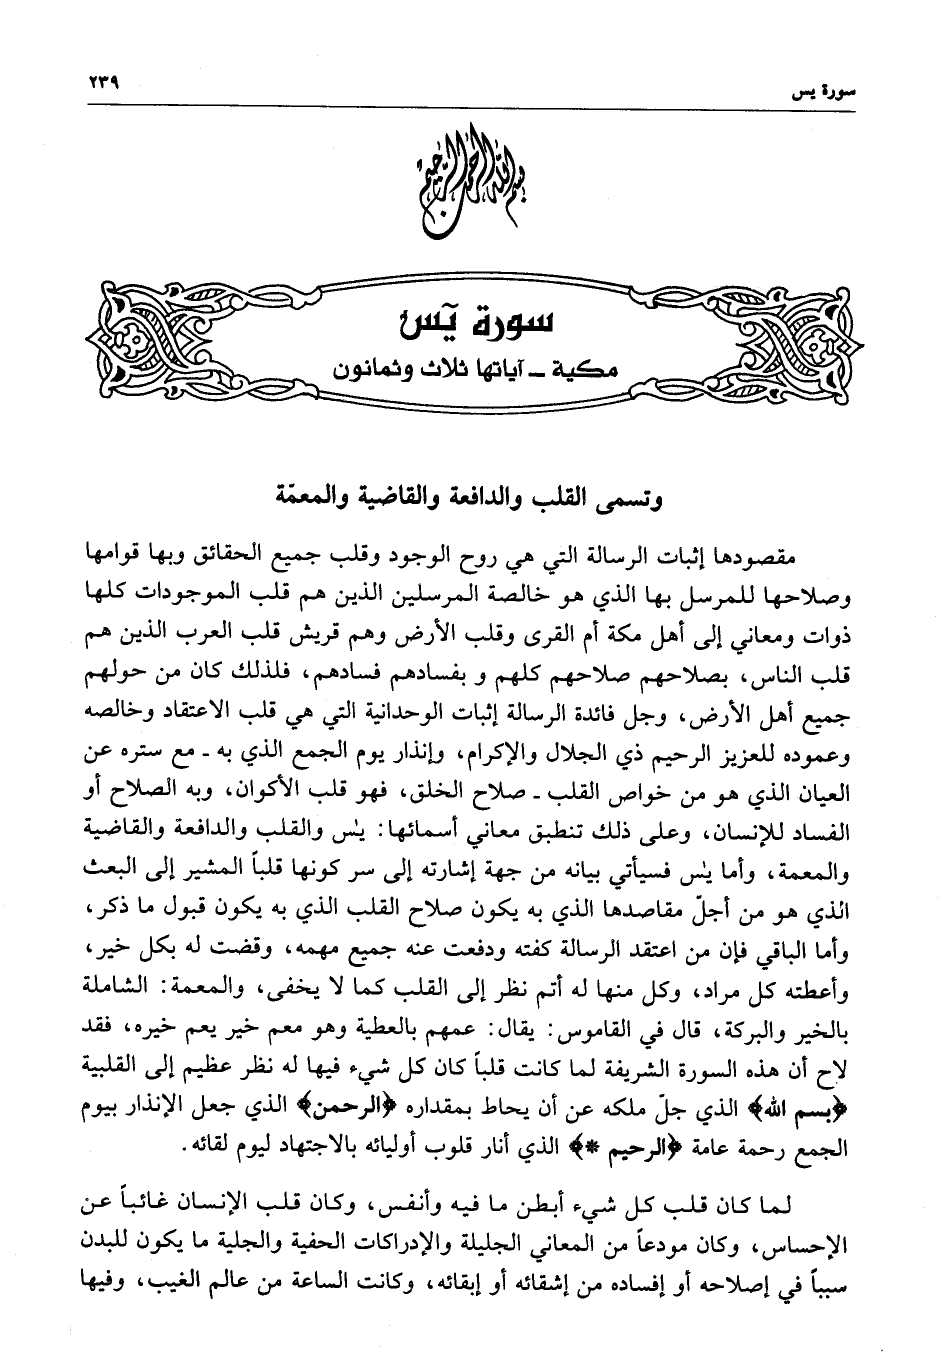 سورة يس
٢٣٩
بسم الله الرحمن الرحيم
سورة يٓس
مكية ـ آياتها ثلاث وثمانون
وتسمى القلب والدافعة والقاضية والمعمّة
مقصودها إثبات الرسالة التي هي روح الوجود وقلب جميع الحقائق وبها قوامها
وصلاحها للمرسل بها الذي هو خالصة المرسلين الذين هم قلب الموجودات كلها
ذوات ومعاني إلى أهل مكة أم القرى وقلب الأرض وهم قريش قلب العرب الذين هم
قلب الناس، بصلاحهم صلاحهم كلهم و بفسادهم فسادهم، فلذلك كان من حولهم
جميع أهل الأرض، وجل فائدة الرسالة إثبات الوحدانية التي هي قلب الاعتقاد وخالصه
وعموده للعزيز الرحيم ذي الجلال والإكرام، وإنذار يوم الجمع الذي به ـ مع ستره عن
العيان الذي هو من خواص القلب ـ صلاح الخلق، فهو قلب الأكوان، وبه الصلاح أو
الفساد للإنسان، وعلى ذلك تنطبق معاني أسمائها: يٰس والقلب والدافعة والقاضية
والمعمة، وأما يٰس فسيأتي بيانه من جهة إشارته إلى سر كونها قلباً المشير إلى البعث
الذي هو من أجلّ مقاصدها الذي به يكون صلاح القلب الذي به يكون قبول ما ذكر،
وأما الباقي فإن من اعتقد الرسالة كفته ودفعت عنه جميع مهمه، وقضت له بكل خير،
وأعطته كل مراد، وكل منها له أتم نظر إلى القلب كما لا يخفى، والمعمة: الشاملة
بالخير والبركة، قال في القاموس: يقال: عمهم بالعطية وهو معم خير يعم خيره، فقد
لاح أن هذه السورة الشريفة لما كانت قلباً كان كل شيء فيها له نظر عظيم إلى القلبية
﴿بسم الله﴾ الذي جلّ ملكه عن أن يحاط بمقداره ﴿الرحمن﴾ الذي جعل الإنذار بيوم
الجمع رحمة عامة ﴿الرحيم *﴾ الذي أنار قلوب أوليائه بالاجتهاد ليوم لقائه.
لما كان قلب كل شيء أبطن ما فيه وأنفس، وكان قلب الإنسان غائباً عن
الإحساس، وكان مودعاً من المعاني الجليلة والإدراكات الحفية والجلية ما يكون للبدن
سبباً في إصلاحه أو إفساده من إشقائه أو إبقائه، وكانت الساعة من عالم الغيب، وفيها